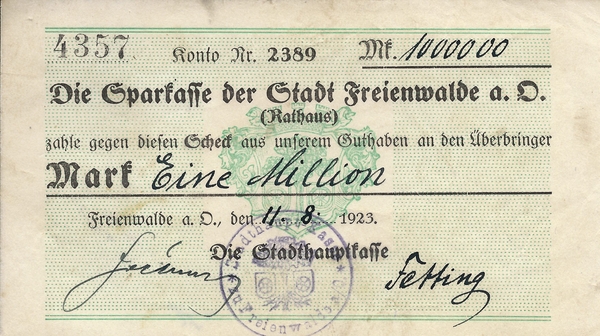 4357.
Konto Nr. 2389
Mk. 1000000
Die Sparkasse der Stadt Freienwalde a. O.
(Rathaus)
zahle gegen diesen Scheck aus unserem Guthaben an den Überbringer
Mark Eine Million
Freienwalde a. O., den 11. 8. 1923.
Die Stadthauptkasse
Fetting